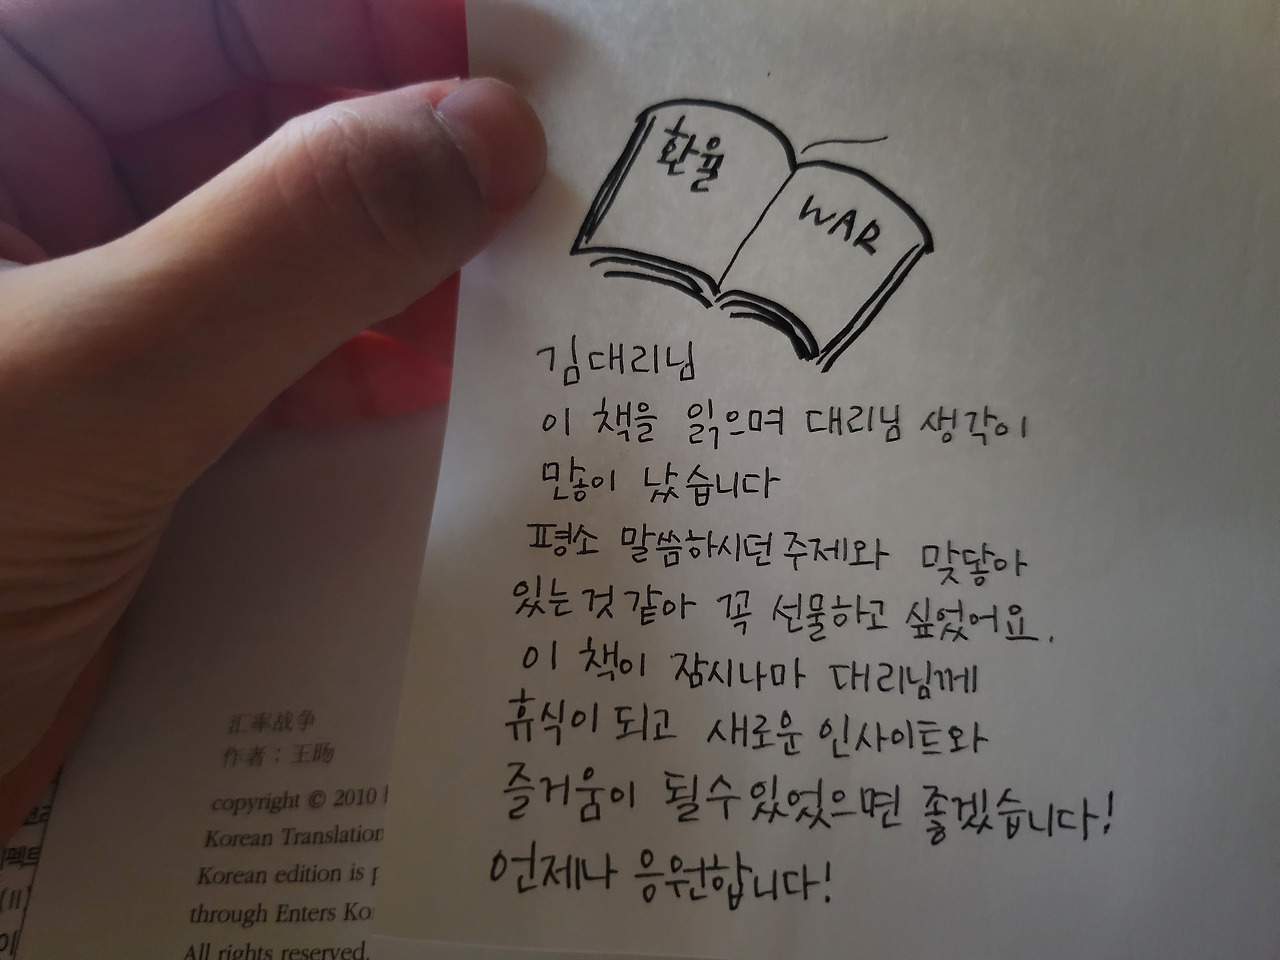 환율
WAR
김대리님
이 책을 읽으며 대리님 생각이
많이 났습니다
평소 말씀하시던 주제와 맞닿아
있는것 같아 꼭 선물하고 싶었어요.
이 책이 잠시나마 대리님께
휴식이 되고 새로운 인사이트와
즐거움이 될수있었으면 좋겠습니다!
언제나 응원합니다!
汇率战争
作者：王旸
copyright © 2010
Korean Translation
Korean edition is
through Enters Ko
All rights reserved.